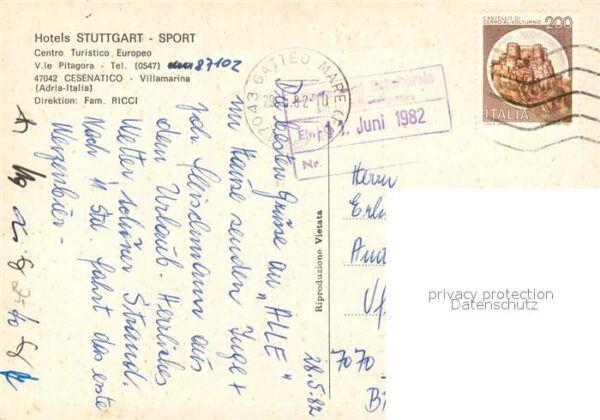 Hotels STUTTGART - SPORT
Centro Turistico Europeo
V.le Pitagora - Tel. (0547) 87102
47042 CESENATICO - Villamarina
(Adria-Italia)
Direktion: Fam. RICCI
47043 GATTEO MARE
29.5.82-10
Juni 1982
Nr.
CASTELLO DI
CERRO AL VOLTURNO
200
ITALIA
Die besten Grüße an "ALLE"
im Hause senden Inge +
Fleischmann aus
dem Urlaub. Herrliches
Wetter, schöner Strand.
Nach 11 Std. Fahrt das erste
Weizenbier -
28.5.82
Riproduzione Vietata
Herrn
7070
privacy protection
Datenschutz